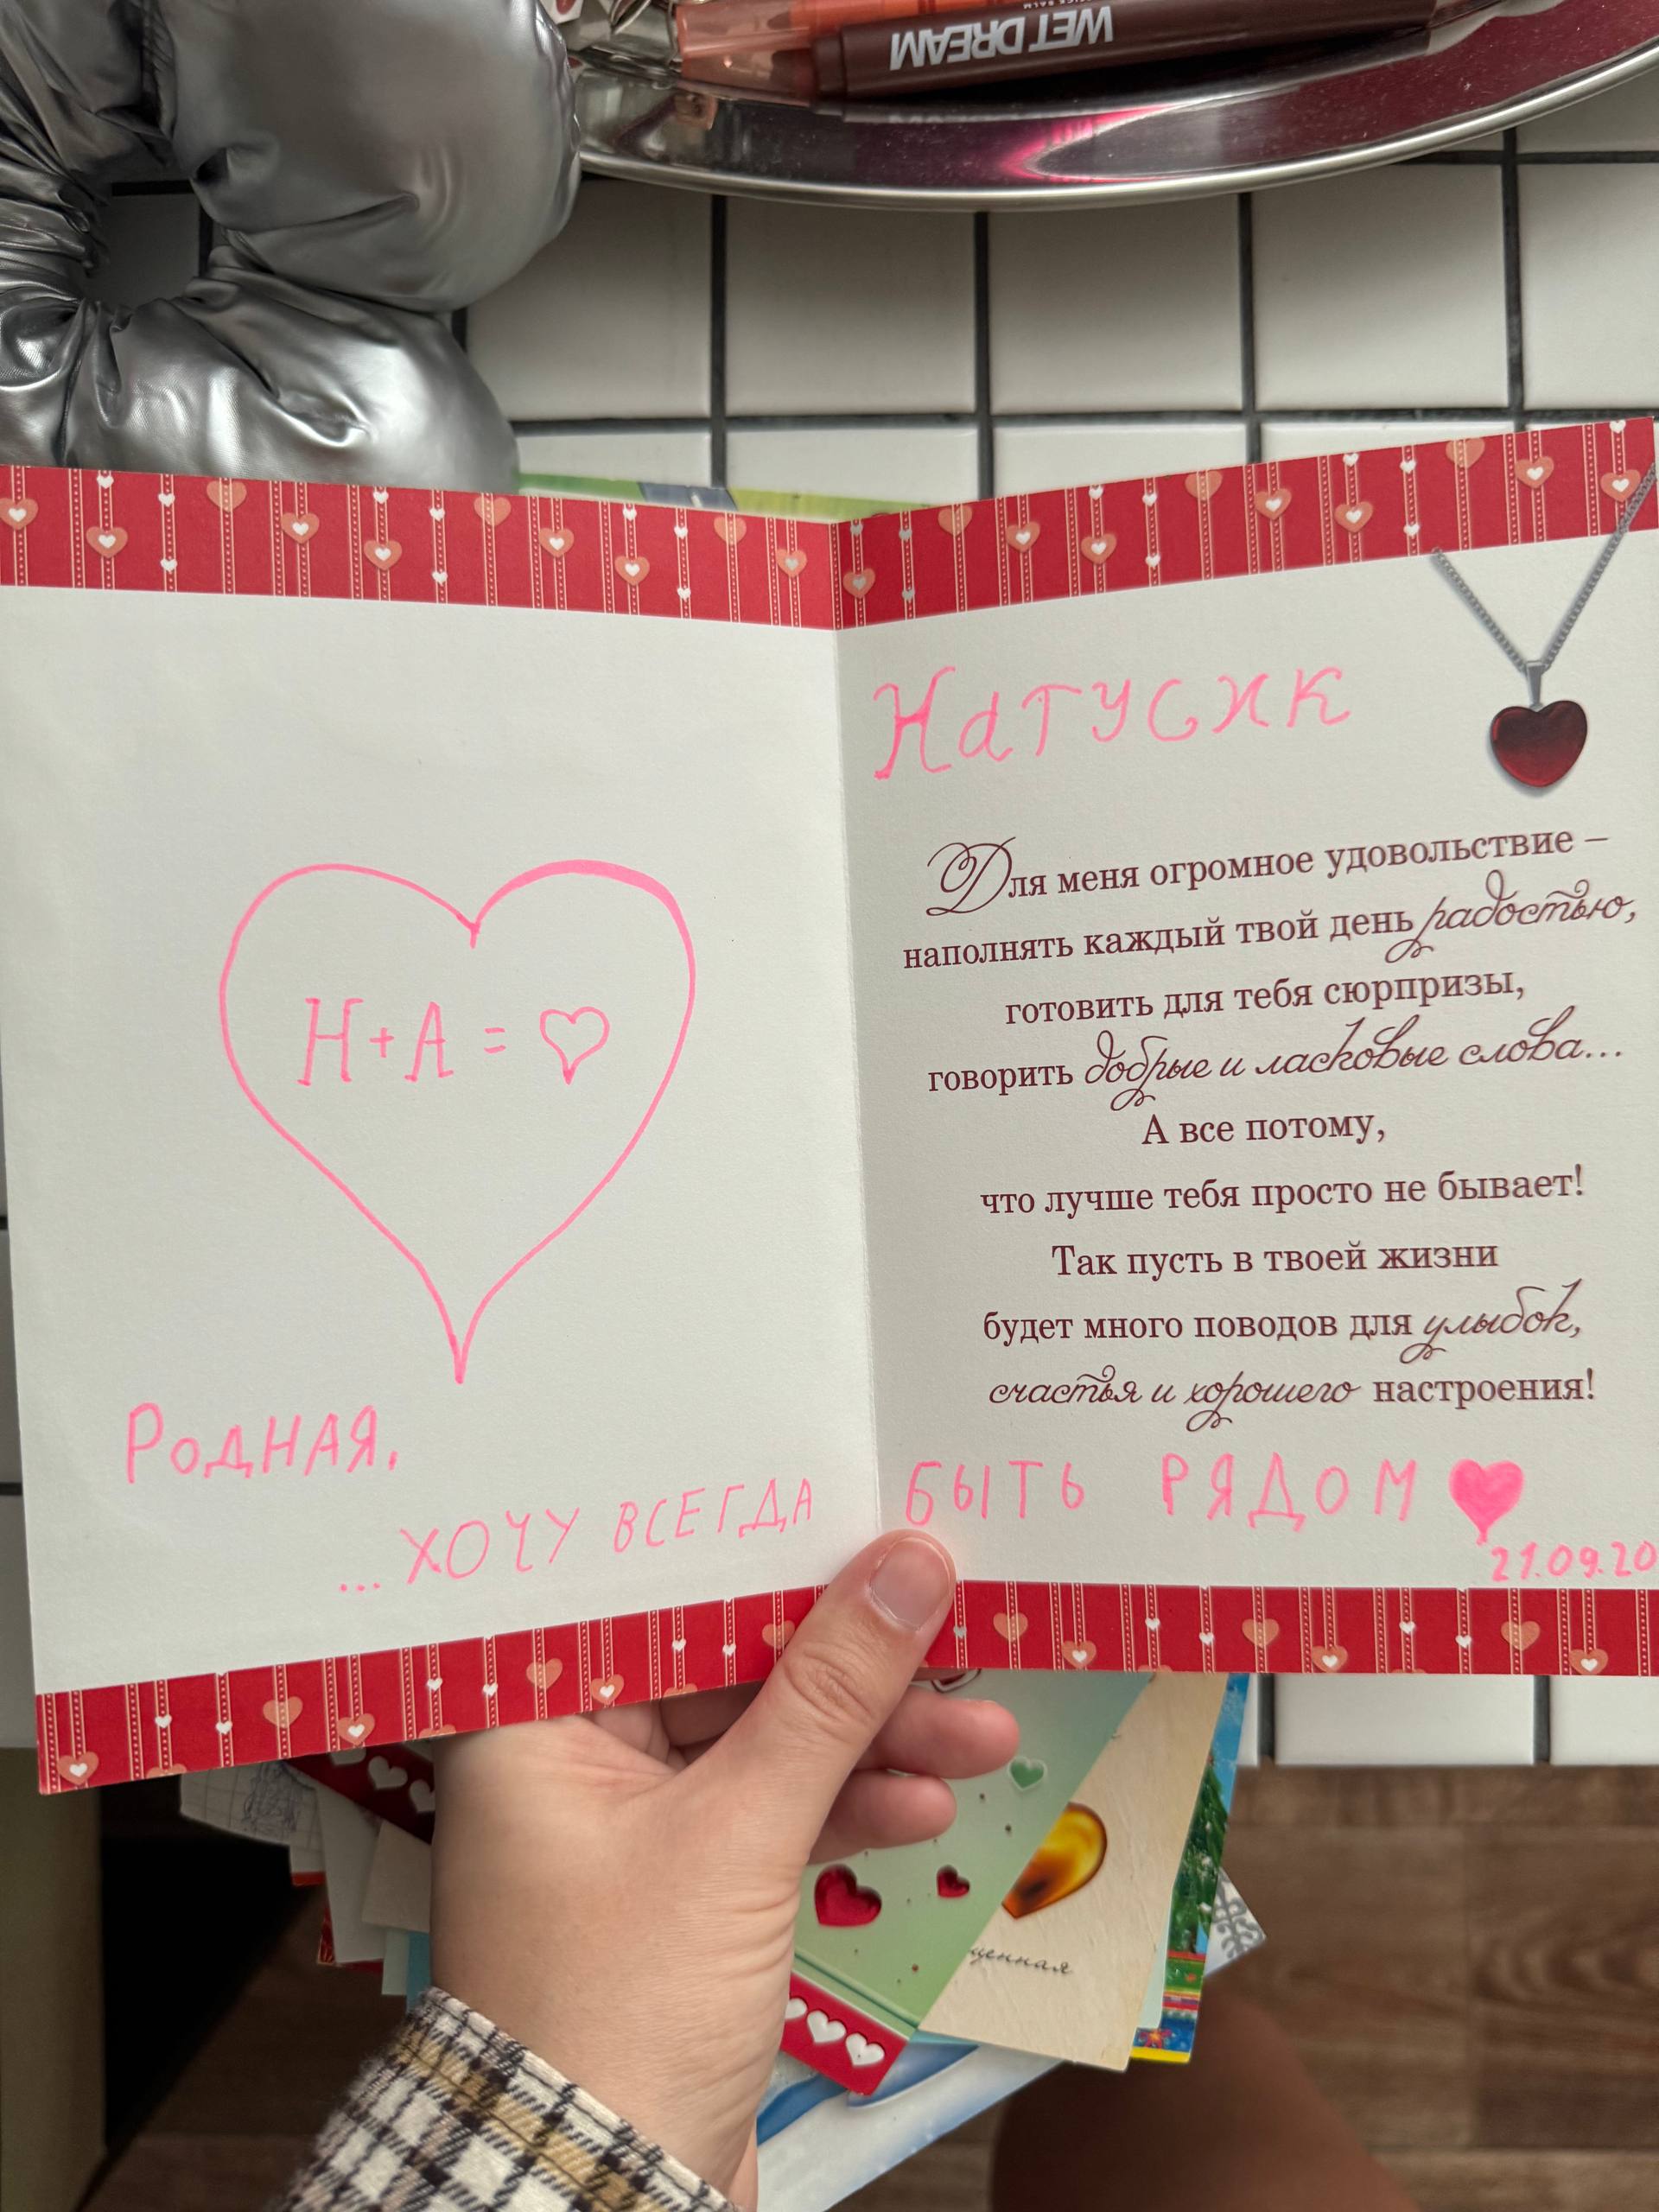 WET DREAM
Н+А=♡
Родная,
...хочу всегда быть рядом ♥
Натусик
Для меня огромное удовольствие –
наполнять каждый твой день радостью,
готовить для тебя сюрпризы,
говорить добрые и ласковые слова...
А все потому,
что лучше тебя просто не бывает!
Так пусть в твоей жизни
будет много поводов для улыбок,
счастья и хорошего настроения!
21.09.20